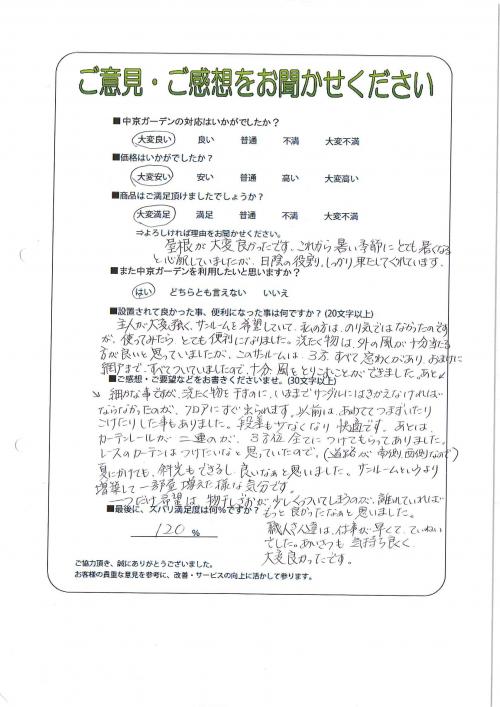 ご意見・ご感想をお聞かせください
■中京ガーデンの対応はいかがでしたか?
大変良い 良い 普通 不満 大変不満
■価格はいかがでしたか?
大変安い 安い 普通 高い 大変高い
■商品はご満足頂けましたでしょうか?
大変満足 満足 普通 不満 大変不満
⇒よろしければ理由をお聞かせください。
屋根が大変良かったです。これから暑い季節にとても暑くなる
と心配していましたが、日陰の役割、しっかり果たしてくれています。
■また中京ガーデンを利用したいと思いますか?
はい どちらとも言えない いいえ
■設置されて良かった事、便利になった事は何ですか?(20文字以上)
主人が大変強く、サンルームを希望していて、私の方は、のり気ではなかったのです
が、使ってみたら、とても便利になりました。洗たく物は、外の風が十分当たる
方が良いと思っていましたが、このサンルームは、3方すべて窓わくがあり、おまけに
網戸まで、すべてついていましたので、十分風をとりこむことができました。あと
■ご感想・ご要望などをお書きくださいませ。(30文字以上)
細かな事ですが、洗たく物を干すのに、いままでサンダルにはきかえなければ
ならなかったのが、フロアにすぐ出られます。以前は、あわててつまずいたり
こけたりした事もありました。段差も少なくなり快適です。あとは、
カーテンレールが二重のが、3方位全てにつけてもらってありました。
レースのカーテンはつけたいなと思っていたので、(道路が南側、西側なので)
夏にかけても、斜光もできるし良いなぁと思いました。サンルームというより
増築して一部屋増えた様な気分です。
一つだけ希望は、物干しざおが少しくっついてしまうのが、離れていれば
もっと良かったなぁと思いました。
■最後に、ズバリ満足度は何%ですか?
120 %
職人さん達は、仕事が早くて、ていねい
でした。あいさつも気持ち良く、
大変良かったです。
ご協力頂き、誠にありがとうございました。
お客様の貴重な意見を参考に、改善・サービスの向上に活かして参ります。